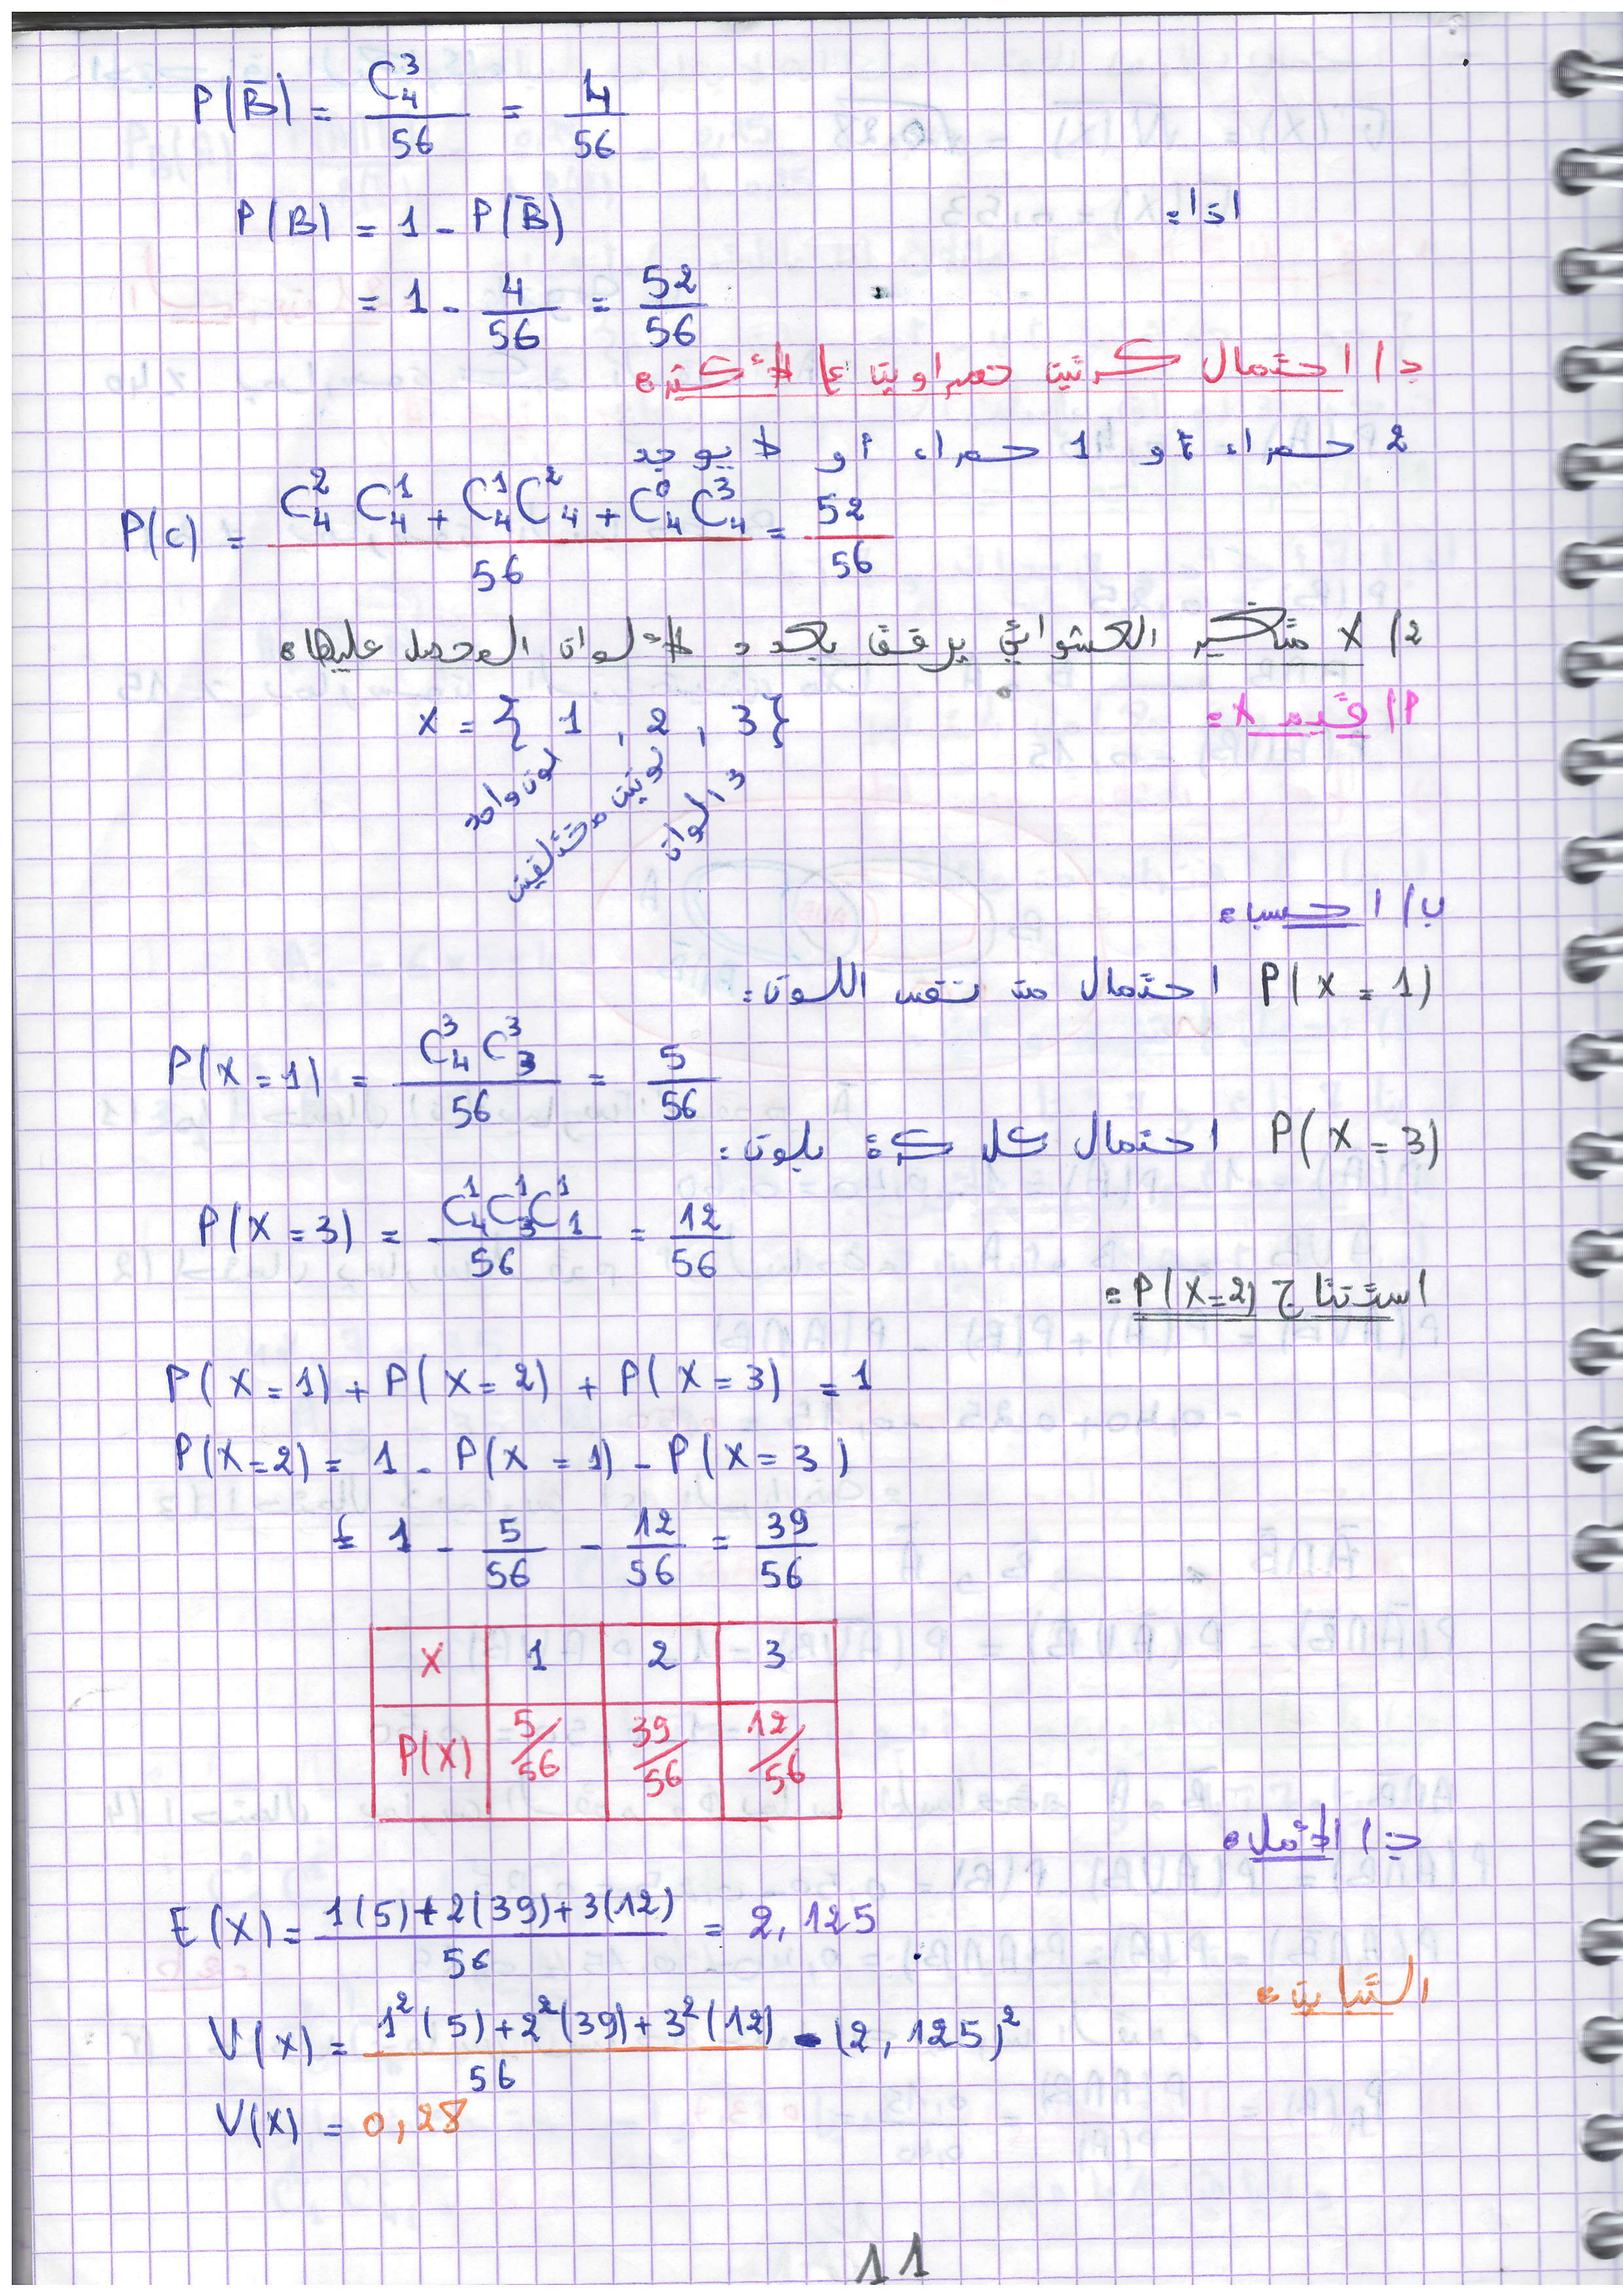 P(B̄) = C₄³ / 56 = 4 / 56
اذا:
P(B) = 1 - P(B̄)
= 1 - 4/56 = 52/56
ج/ احتمال كرتين حمراويتن على الأكثر:
2 حمراء أو 1 حمراء أو لا يوجد
P(C) = (C₄² C₄¹ + C₄¹ C₄² + C₄⁰ C₄³) / 56 = 52/56
2/ X متغير العشوائي يرفق بعدد الألوان المحصل عليها:
أ/ قيم X:
X = { 1 , 2 , 3 }
لون واحد
لونين مختلفين
3 ألوان
ب/ احسب:
P(X = 1) احتمال من نفس اللون:
P(X = 1) = C₄³ C₃³ / 56 = 5/56
P(X = 3) احتمال كل كرة بلون:
P(X = 3) = C₄¹ C₃¹ C₁¹ / 56 = 12/56
استنتاج P(X=2):
P(X = 1) + P(X = 2) + P(X = 3) = 1
P(X=2) = 1 - P(X = 1) - P(X = 3)
= 1 - 5/56 - 12/56 = 39/56
X 1 2 3
P(X) 5/56 39/56 12/56
ج/ الأمل:
E(X) = (1(5) + 2(39) + 3(12)) / 56 = 2,125
التباين:
V(X) = (1²(5) + 2²(39) + 3²(12)) / 56 - (2,125)²
V(X) = 0,28
11